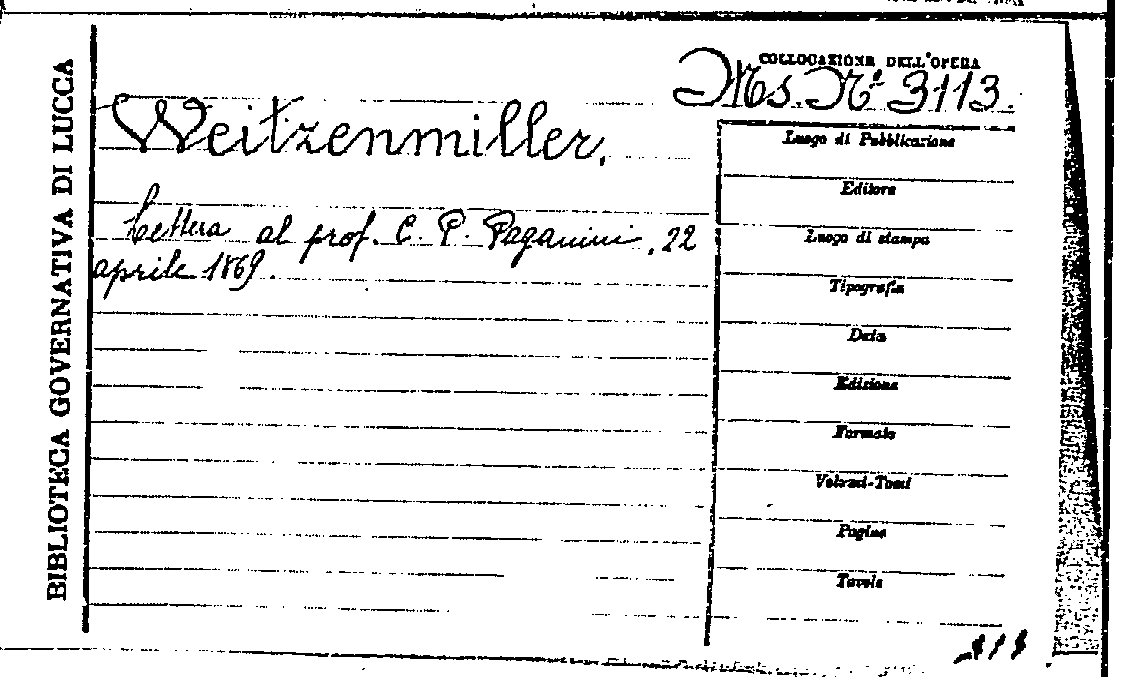 BIBLIOTECA GOVERNATIVA DI LUCCA
COLLOCAZIONE DELL'OPERA
Ms. Nº 3113.
Weitzenmiller,
Lettera al prof. C. P. Paganini, 22
aprile 1869.
Luogo di Pubblicazione
Editore
Luogo di stampa
Tipografia
Data
Edizione
Formato
Volumi-Tomi
Pagine
Tavole